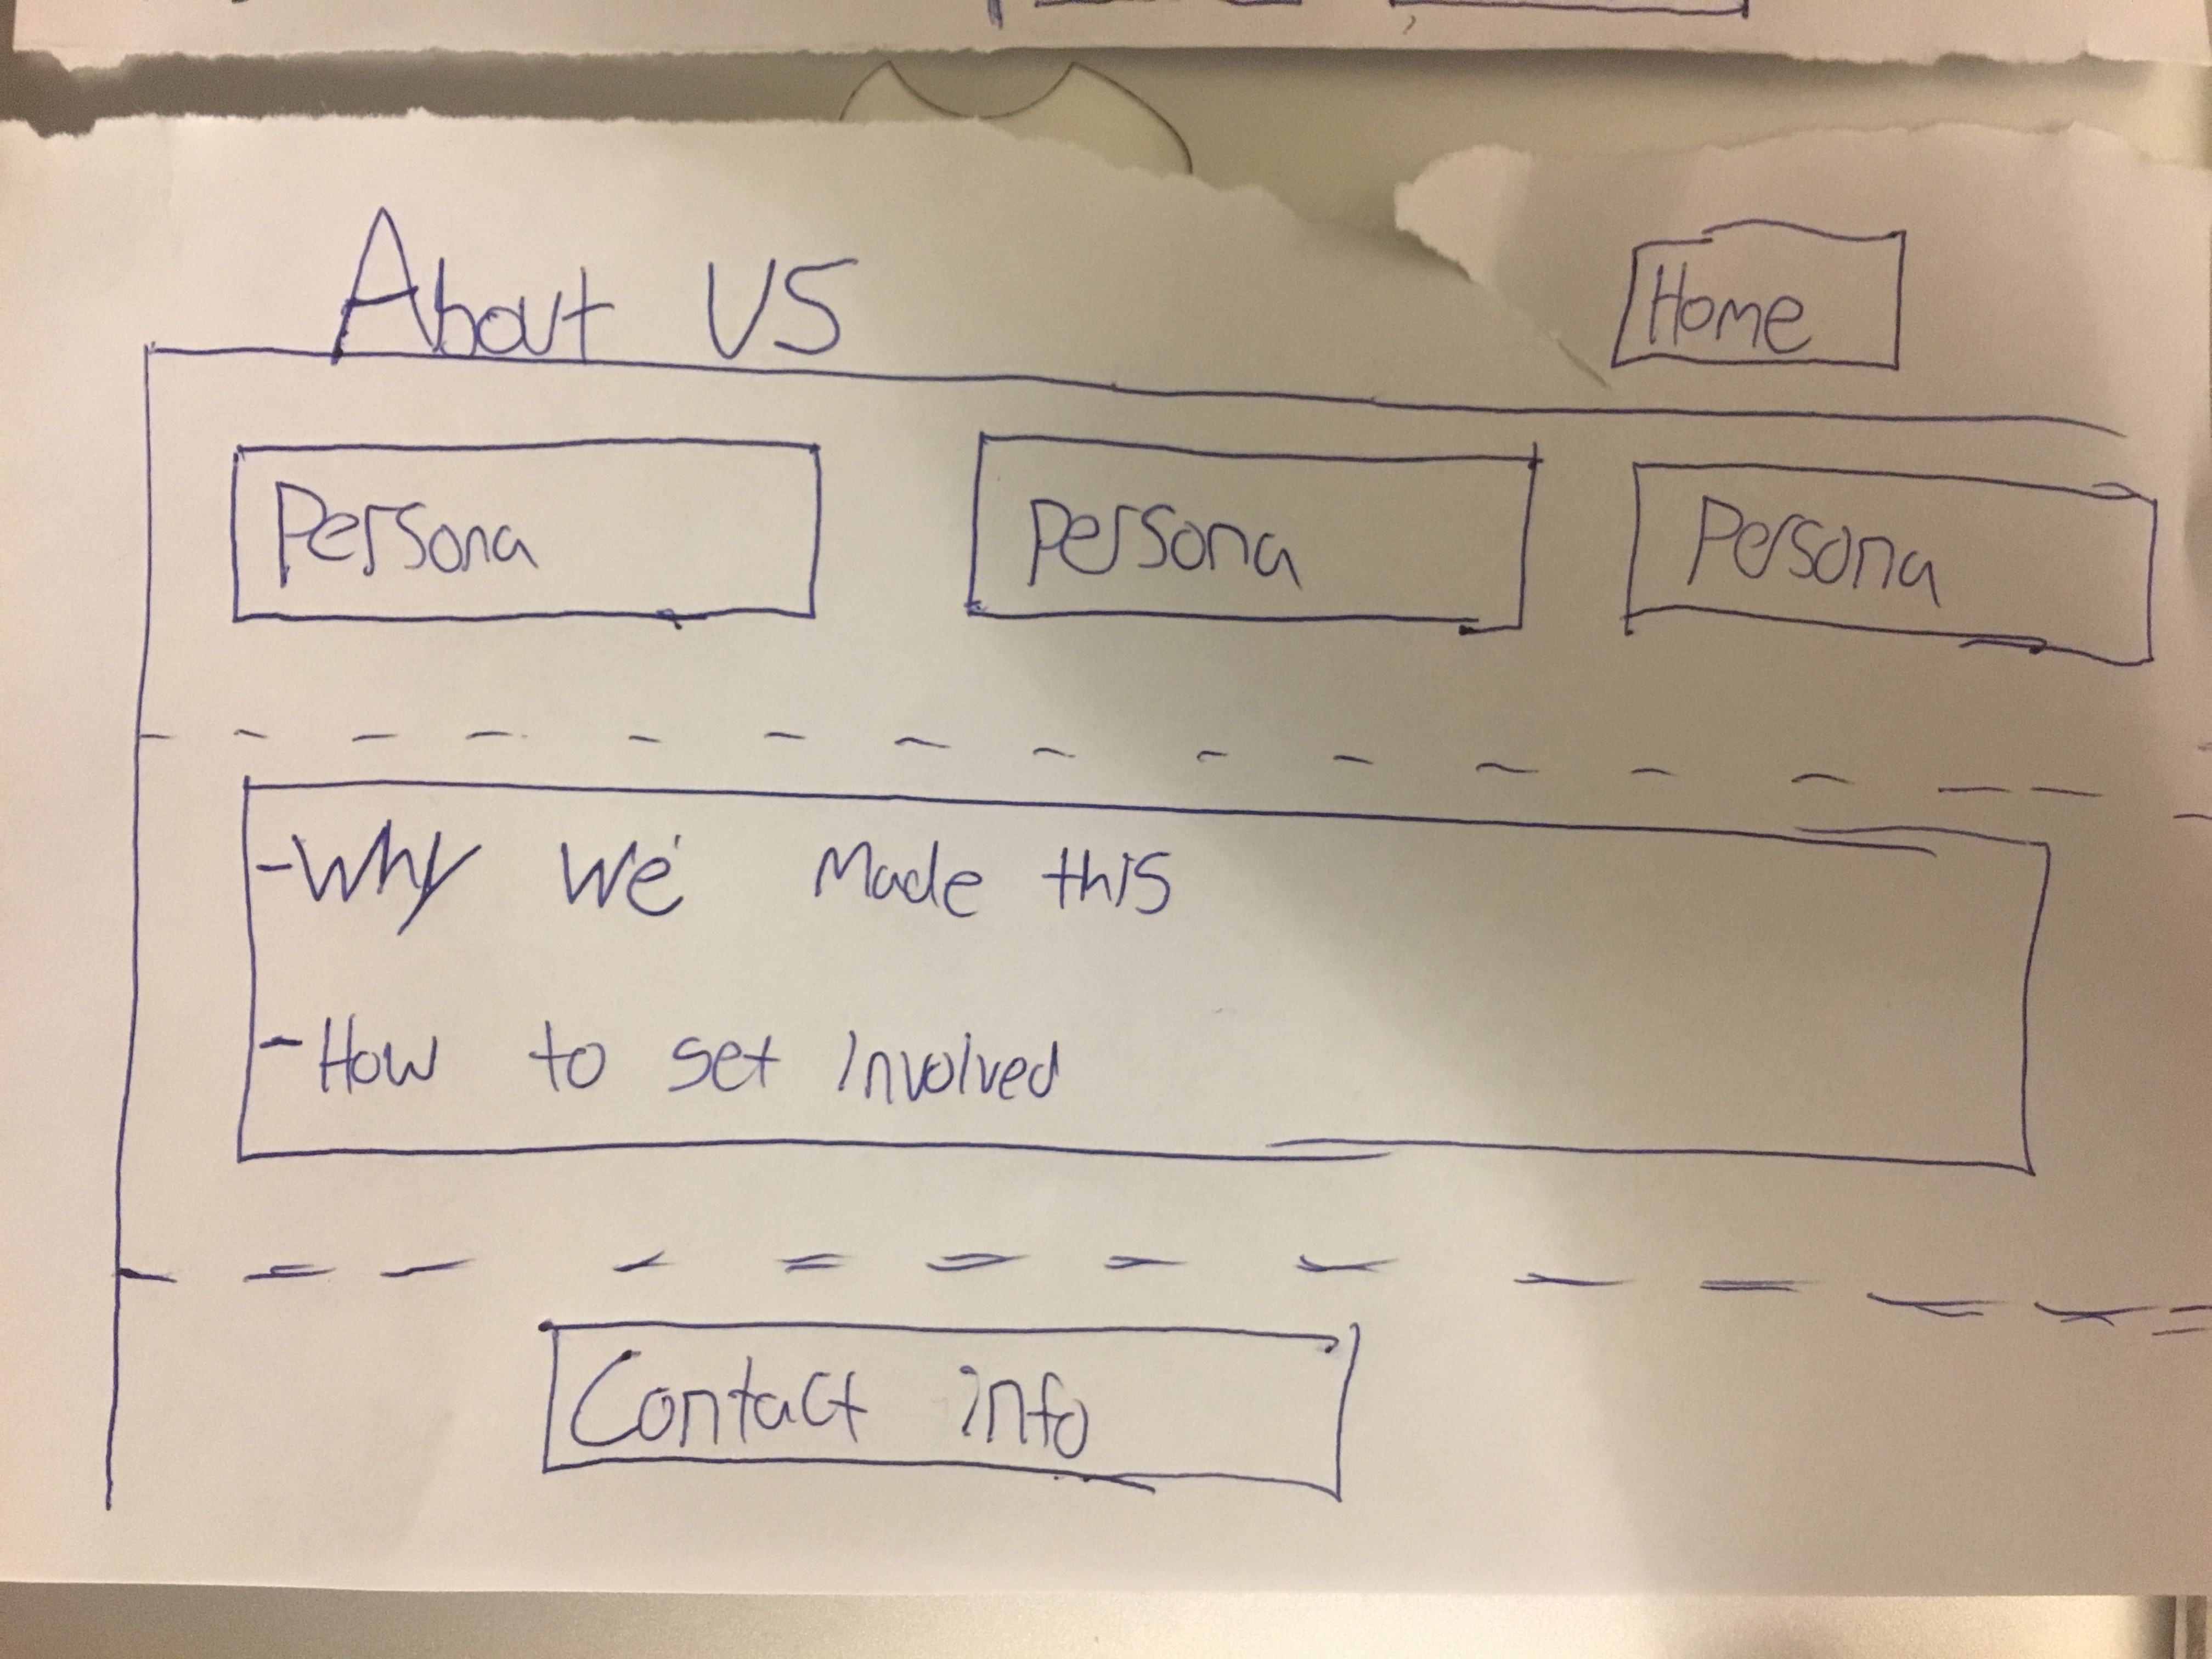 About US
Home
Persona
Persona
Persona
-Why We Made this
-How to get Involved
Contact info